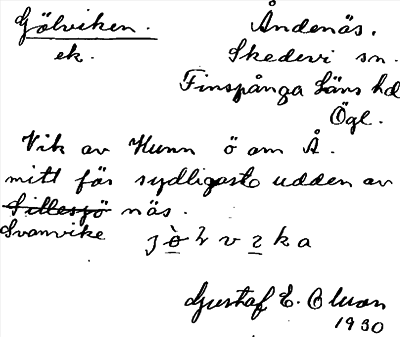 Gölviken. Åndenäs.
ek. Skedevi sn.
Finspånga läns hd
Ögl.
Vik av Hunn ö om Å.
mitt för sydligaste udden av
Sillesjö näs.
Svanvike jòlvika
Gustaf E. Olson
1930